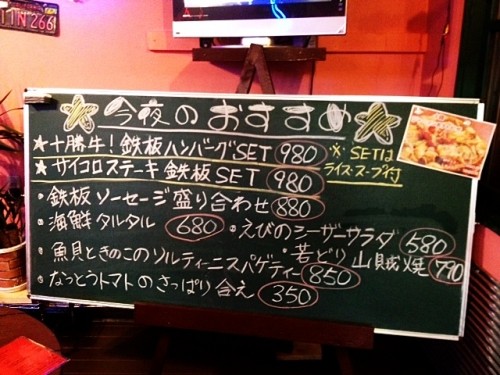 11N266
☆今夜のおすすめ☆
★十勝牛!鉄板ハンバーグSET 980
★サイコロステーキ鉄板SET 980
※SETはライス・スープ付
・鉄板ソーセージ盛り合わせ 880
・海鮮タルタル 680
・えびのシーザーサラダ 580
・若どり山賊焼 790
・魚貝ときのこのソルティーニスパゲティー 850
・なっとうトマトのさっぱり合え 350